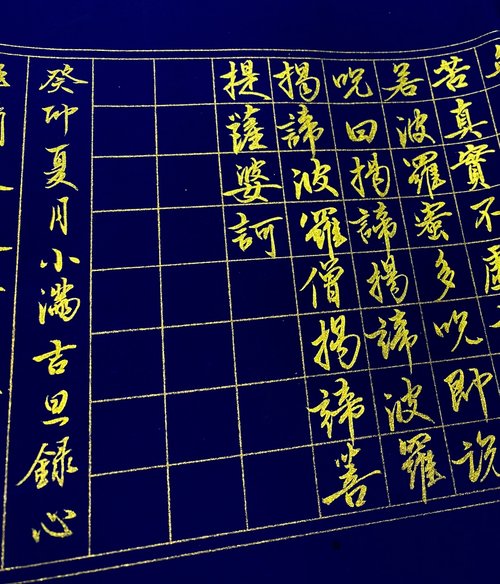 苦真實不虛
若波羅蜜多呪即說
呪曰揭諦揭諦波羅
揭諦波羅僧揭諦菩
提薩婆訶
癸卯夏月小滿吉旦錄心